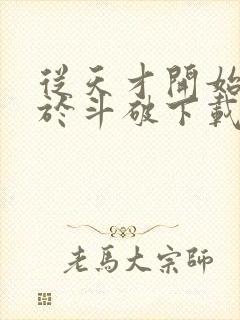 從天才開始
於斗破下載
老馬大宗師